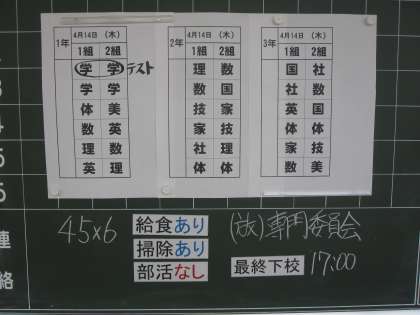 1年 4月14日 (木)
1組 2組
学 学 テスト
学 学
体 美
数 英
理 数
英 理
2年 4月14日 (木)
1組 2組
理 数
数 国
技 家
家 技
社 理
体 体
3年 4月14日 (木)
1組 2組
国 社
社 数
英 国
体 体
家 技
数 美
4
5
5
連絡
45×6
給食あり
掃除あり
部活なし
(放)専門委員会
最終下校 17:00